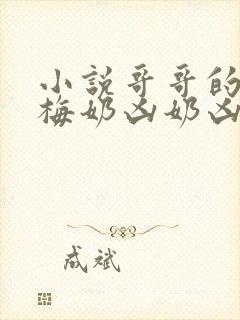 小說哥哥的
梅奶凶奶凶
成斌